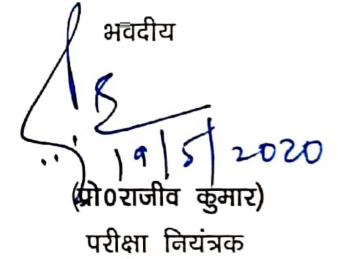 भवदीय
19/5/2020
(प्रो0राजीव कुमार)
परीक्षा नियंत्रक